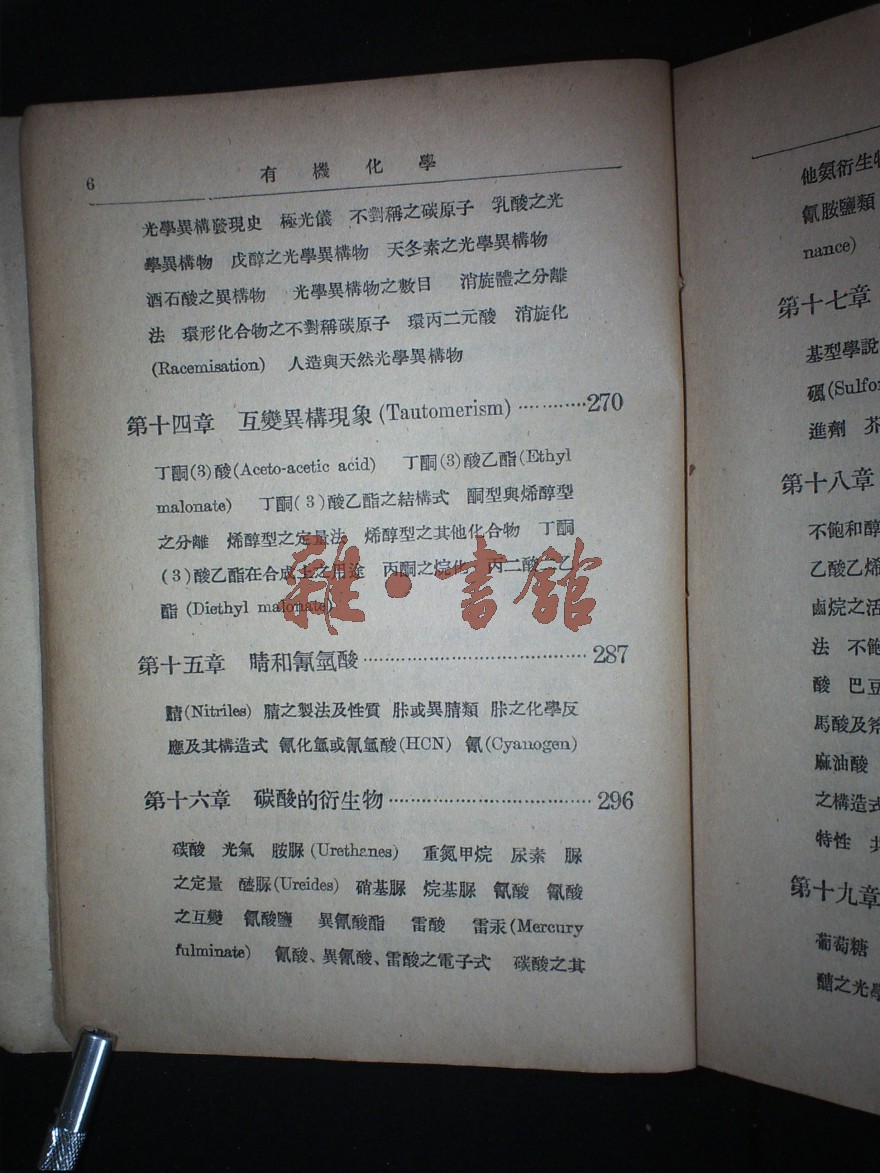 6 有機化學
光學異構發現史 極光儀 不對稱之碳原子 乳酸之光
學異構物 戊醇之光學異構物 天冬素之光學異構物
酒石酸之異構物 光學異構物之數目 消旋體之分離
法 環形化合物之不對稱碳原子 環丙二元酸 消旋化
(Racemisation) 人造與天然光學異構物
第十四章 互變異構現象(Tautomerism)············270
丁酮(3)酸(Aceto-acetic acid) 丁酮(3)酸乙酯(Ethyl
malonate) 丁酮(3)酸乙酯之結構式 酮型與烯醇型
之分離 烯醇型之定量法 烯醇型之其他化合物 丁酮
(3)酸乙酯在合成上之用途 丙酮之烷化 丙二酸二乙
酯 (Diethyl malonate)
雜·書館
第十五章 腈和氰氫酸······································287
腈(Nitriles) 腈之製法及性質 胩或異腈類 胩之化學反
應及其構造式 氰化氫或氰氫酸(HCN) 氰(Cyanogen)
第十六章 碳酸的衍生物···································296
碳酸 光氣 胺脲(Urethanes) 重氮甲烷 尿素 脲
之定量 醯脲(Ureides) 硝基脲 烷基脲 氰酸 氰酸
之互變 氰酸鹽 異氰酸酯 雷酸 雷汞(Mercury
fulminate) 氰酸、異氰酸、雷酸之電子式 碳酸之其
他氨衍生物
氰胺鹽類
nance)
第十七章
基型學說
碸(Sulfo
進劑 芥
第十八章
不飽和醇
乙酸乙烯
鹵烷之活
法 不飽
酸 巴豆
馬酸及
麻油酸
之構造式
特性
第十九章
葡萄糖
醣之光學